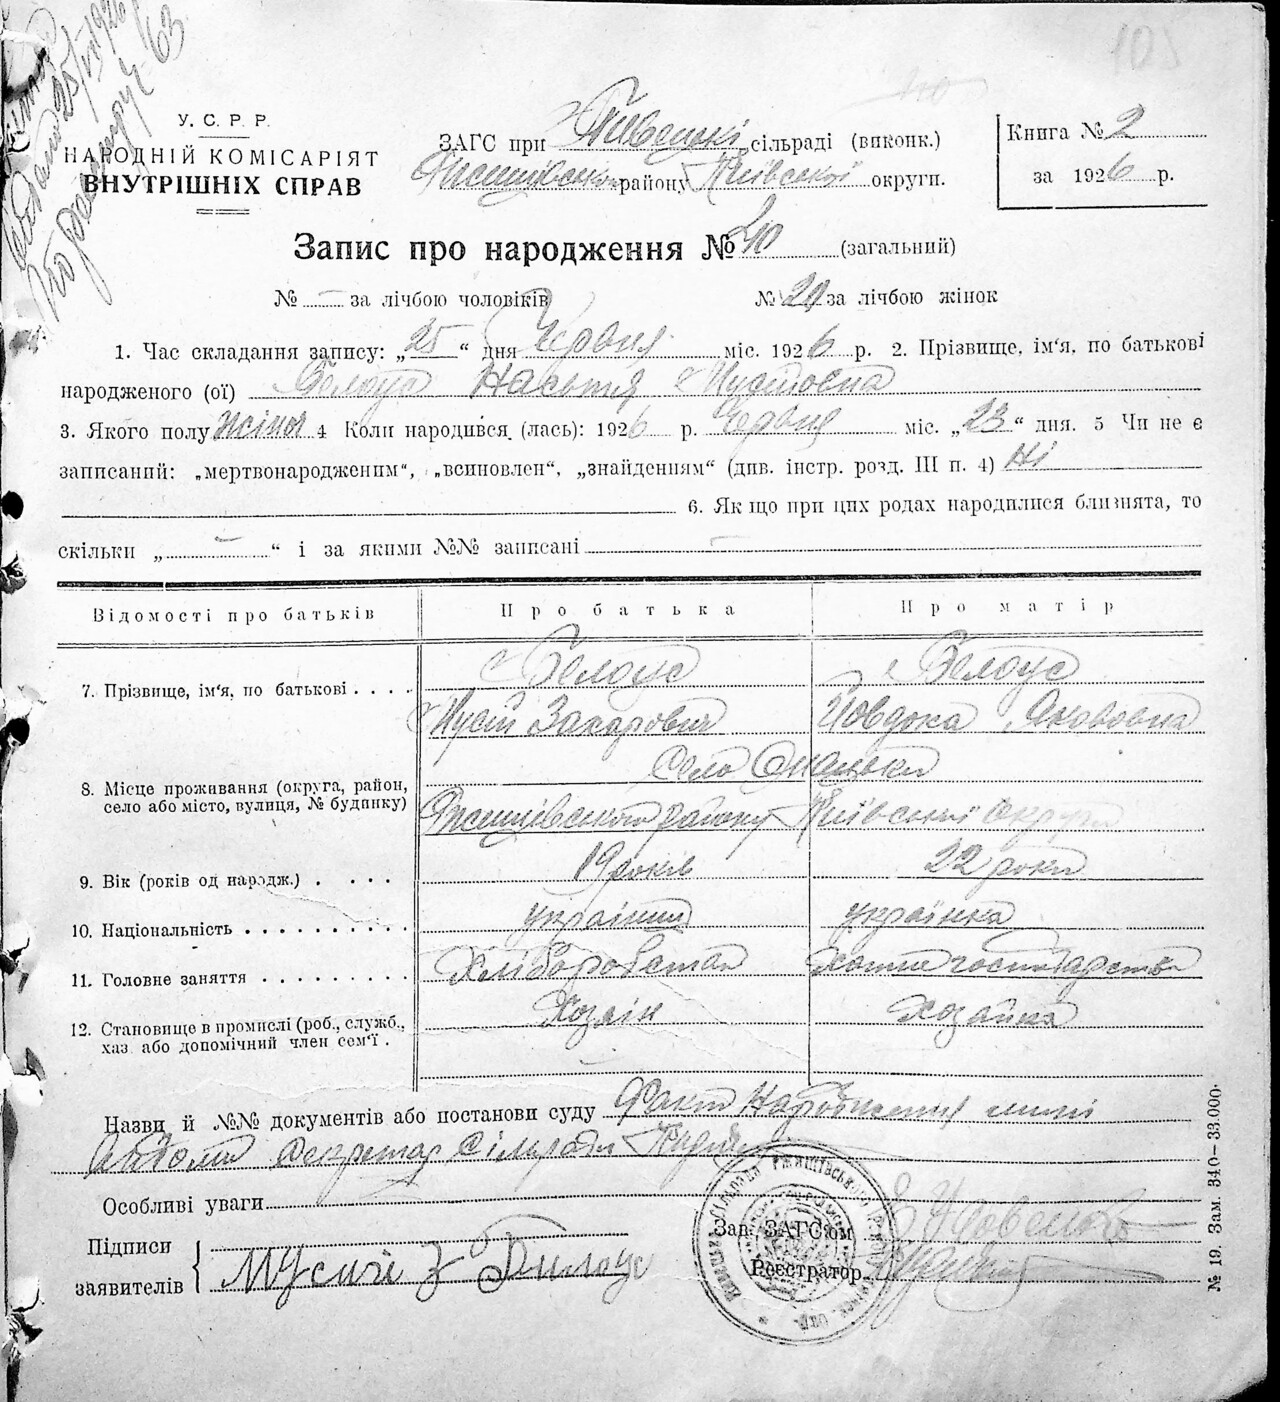 У. С. Р. Р.
НАРОДНІЙ КОМІСАРІЯТ
ВНУТРІШНІХ СПРАВ
ЗАГС при сільраді (виконк.)
району Київської округи.
Книга № 2
за 1926 р.
Запис про народження № 40 (загальний)
№ – за лічбою чоловіків № 20 за лічбою жінок
1. Час складання запису: „25“ дня Червня міс. 1926 р. 2. Прізвище, ім'я, по батькові
народженого (ої) Белоус Настя
3. Якого полу жіноч 4 Коли народився (лась): 1926 р. Червня міс. „23“ дня. 5 Чи не є
записаний: „мертвонародженим“, „всиновлен“, „знайденням“ (див. інстр. розд. III п. 4) Ні
6. Як що при цих родах народилися близнята, то
скільки „ – “ і за якими №№ записані –
Відомості про батьків Про батька Про матір
7. Прізвище, ім'я, по батькові . . . . Белоус Белоус
Мусій Захарович Явдоха Якововна
8. Місце проживання (округа, район, Село
село або місто, вулиця, № будинку) району Київської округи
9. Вік (років од народж.) . . . . 19 років 22 роки
10. Національність . . . . . . . . . . українець українка
11. Головне заняття . . . . . . . . Хліборобство хатнє господарство
12. Становище в промислі (роб., служб., Хозяїн Хозяйка
хаз. або допомічний член сем'ї .
Назви й №№ документів або постанови суду Факт Народження мині
відомий Секретар Сільради
Особливі уваги
Підписи
заявителів Мусий З Билоус
Зав. ЗАГС'ом
Реєстратор
№ 19. Зам. 340–33.000.